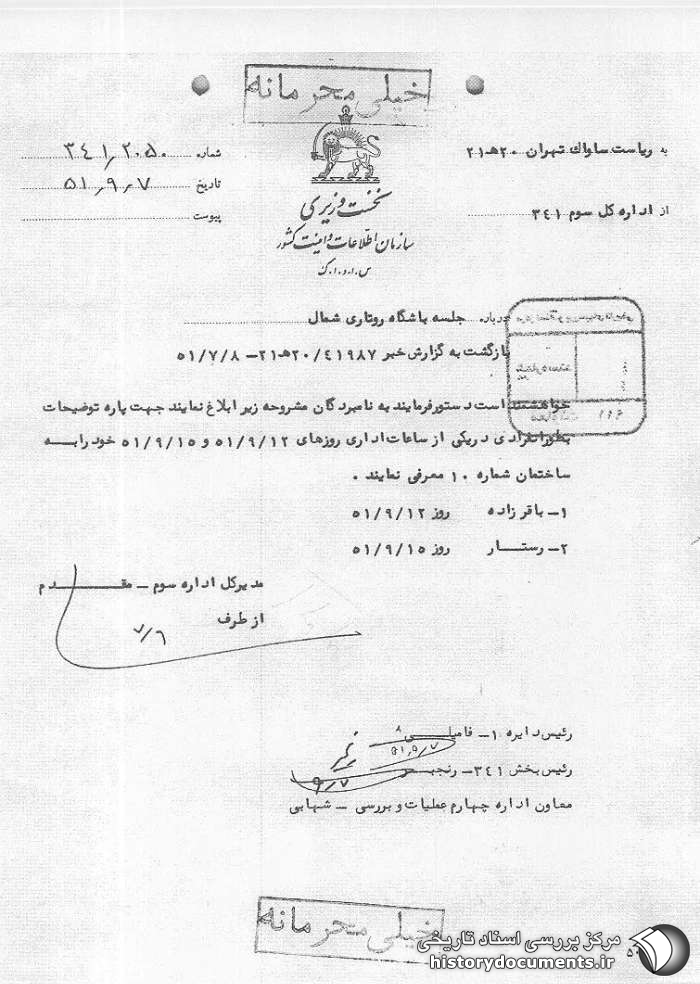 خیلی محرمانه
به ریاست ساواك تهران ۲۰ﻫ۲۱
از اداره کل سوم ۳۴۱
نخست وزیری
سازمان اطلاعات و امنیت کشور
س.ا.و.ا.ک
شماره ۳۴۱٫۲۰۵۰
تاریخ ۵۱٫۹٫۷
پیوست
درباره جلسه باشگاه روتاری شمال
بازگشت به گزارش خبر ۲۰/۴۱۹۸۷ﻫ۲۱ – ۵۱/۷/۸
خواهشمند است دستورفرمایند به نامبردگان مشروحه زیر ابلاغ نمایند جهت پاره توضیحات
بطورانفرادی دریکی از ساعات اداری روزهای ۵۱/۹/۱۲ و ۵۱/۹/۱۵ خود رابه
ساختمان شماره ۱۰ معرفی نمایند .
۱– باقرزاده روز ۵۱/۹/۱۲
۲– رستار روز ۵۱/۹/۱۵
مدیرکل اداره سوم – مقدم
از طرف
رئیس دایره ۱– فامیلی
۵۱٫۹٫۷
رئیس بخش ۳۴۱–
۹٫۷
معاون اداره چهارم عملیات و بررسی – شهابی
خیلی محرمانه
مرکز بررسی اسناد تاریخی
historydocuments.ir